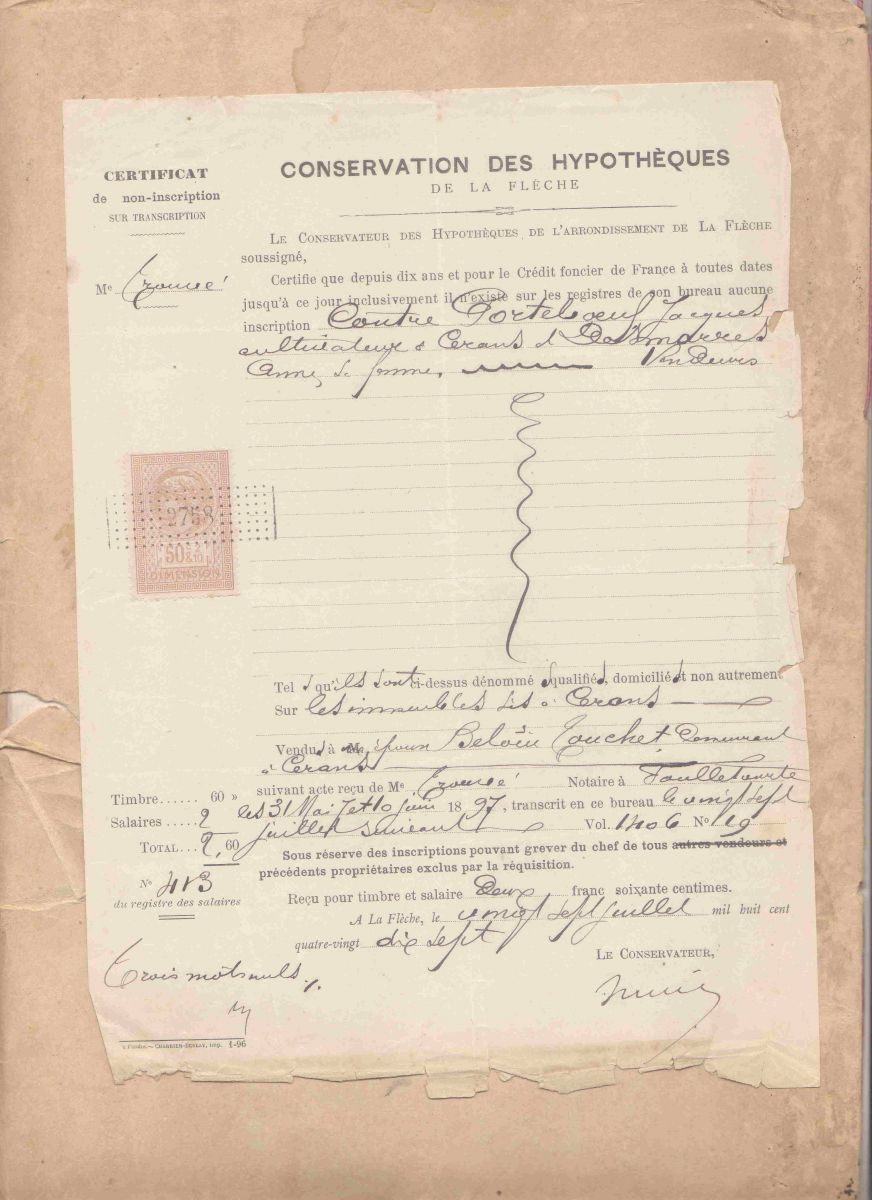 CERTIFICAT
de non-inscription
SUR TRANSCRIPTION
Me
CONSERVATION DES HYPOTHÈQUES
DE LA FLÈCHE
LE CONSERVATEUR DES HYPOTHÈQUES DE L'ARRONDISSEMENT DE LA FLÈCHE
soussigné,
Certifie que depuis dix ans et pour le Crédit foncier de France à toutes dates
jusqu'à ce jour inclusivement il n'existe sur les registres de son bureau aucune
inscription Contre Porteboeuf Jacques
cultivateur à Cerans et Desmarres
Anne, sa femme, Vendeurs
2758
50c 2/10
DIMENSION
Tels qu'ils sont ci-dessus dénommés qualifiés, domiciliés et non autrement
Sur les immeubles sis à Cerans
Vendus à Me, époux Beloin Touchet, Demeurant
à Cerans
suivant acte reçu de Me Notaire à Foulletourte
les 31 Mai 7 et 10 juin 1897, transcrit en ce bureau le vingt sept
juillet suivant Vol. 1406 No 19
Timbre...... 60 »
Salaires ..... 2
TOTAL... 2,60
No 413
du registre des salaires
Sous réserve des inscriptions pouvant grever du chef de tous autres vendeurs et
précédents propriétaires exclus par la réquisition.
Reçu pour timbre et salaire Deux franc soixante centimes.
A La Flèche, le vingt sept juillet mil huit cent
quatre-vingt dix sept
LE CONSERVATEUR,
Trois mots nuls
1-96